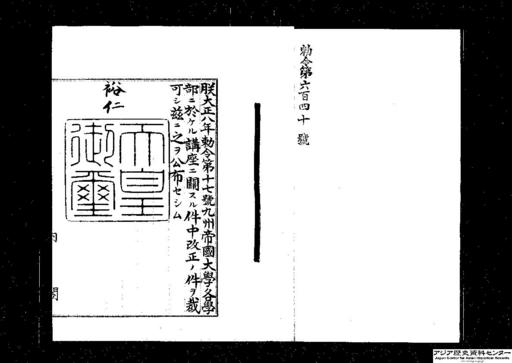 勅令第六百四十號
朕大正八年勅令第十七號九州帝國大學各學
部ニ於ケル講座ニ關スル件中改正ノ件ヲ裁
可シ茲ニ之ヲ公布セシム
裕仁
天皇
御璽
内 閣
アジア歴史資料センター
Japan Center for Asian Historical Records